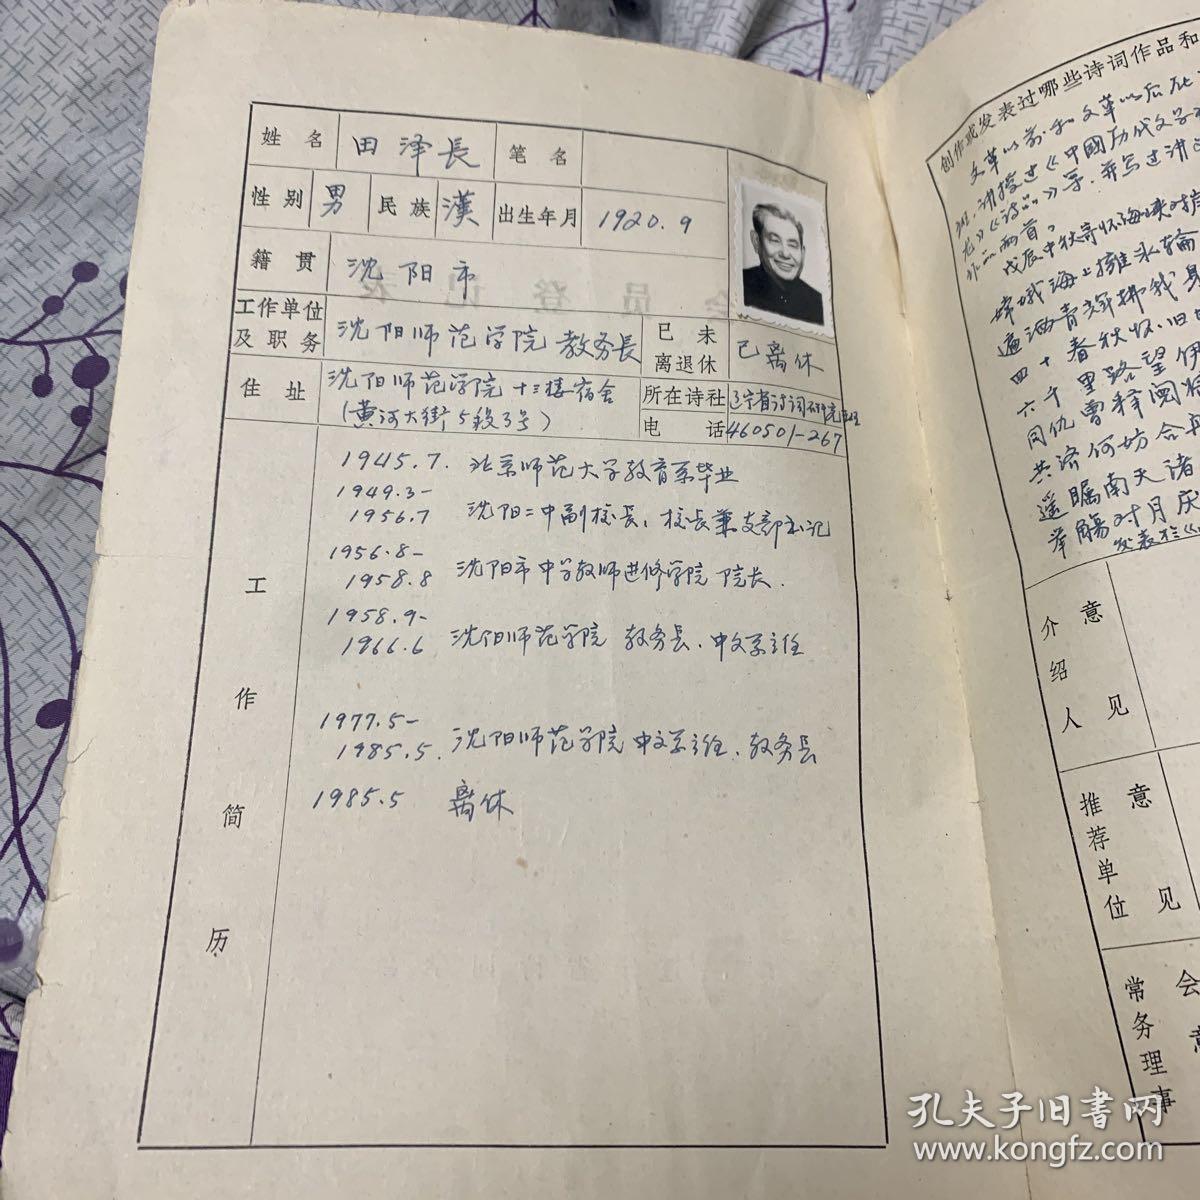 姓名 田泽長 笔名
性别 男 民族 漢 出生年月 1920.9
籍贯 沈阳市
工作单位及职务 沈阳师范学院教务長 已未离退休 已离休
住址 沈阳师范学院十三楼宿舍
(黄河大街5段3号)
所在诗社 辽宁省诗词研究
电话 460501-267
工作简历
1945.7. 北京师范大学教育系毕业
1949.3-
1956.7 沈阳二中副校長、校長兼支部书记
1956.8-
1958.8 沈阳市中学教师进修学院 院长.
1958.9-
1966.6 沈阳师范学院 教务長、中文系主任
1977.5-
1985.5. 沈阳师范学院 中文系主任、教务長
1985.5 离休
创作或发表过哪些诗词作品和
文革以前和文革以后在
讲授过《中國历代文学
》《诗品》等,并写过讲
作品两首。
戊辰中秋寄怀海峡对岸
嫦娥海上擁冰輪
遍洒青辉拂我
四十春秋怀旧
六千里路望伊
同仇曾释阋墙
共济何妨合再
遥瞩南天诸
举觴对月庆
发表於《
介绍人意见
推荐单位意见
常务理事会意
孔夫子旧书网
www.kongfz.com